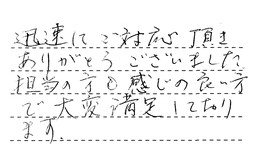 迅速に ご対応 頂き
ありがとう ございました
担当の方も 感じの良い方
で 大変 満足 しており
ます.